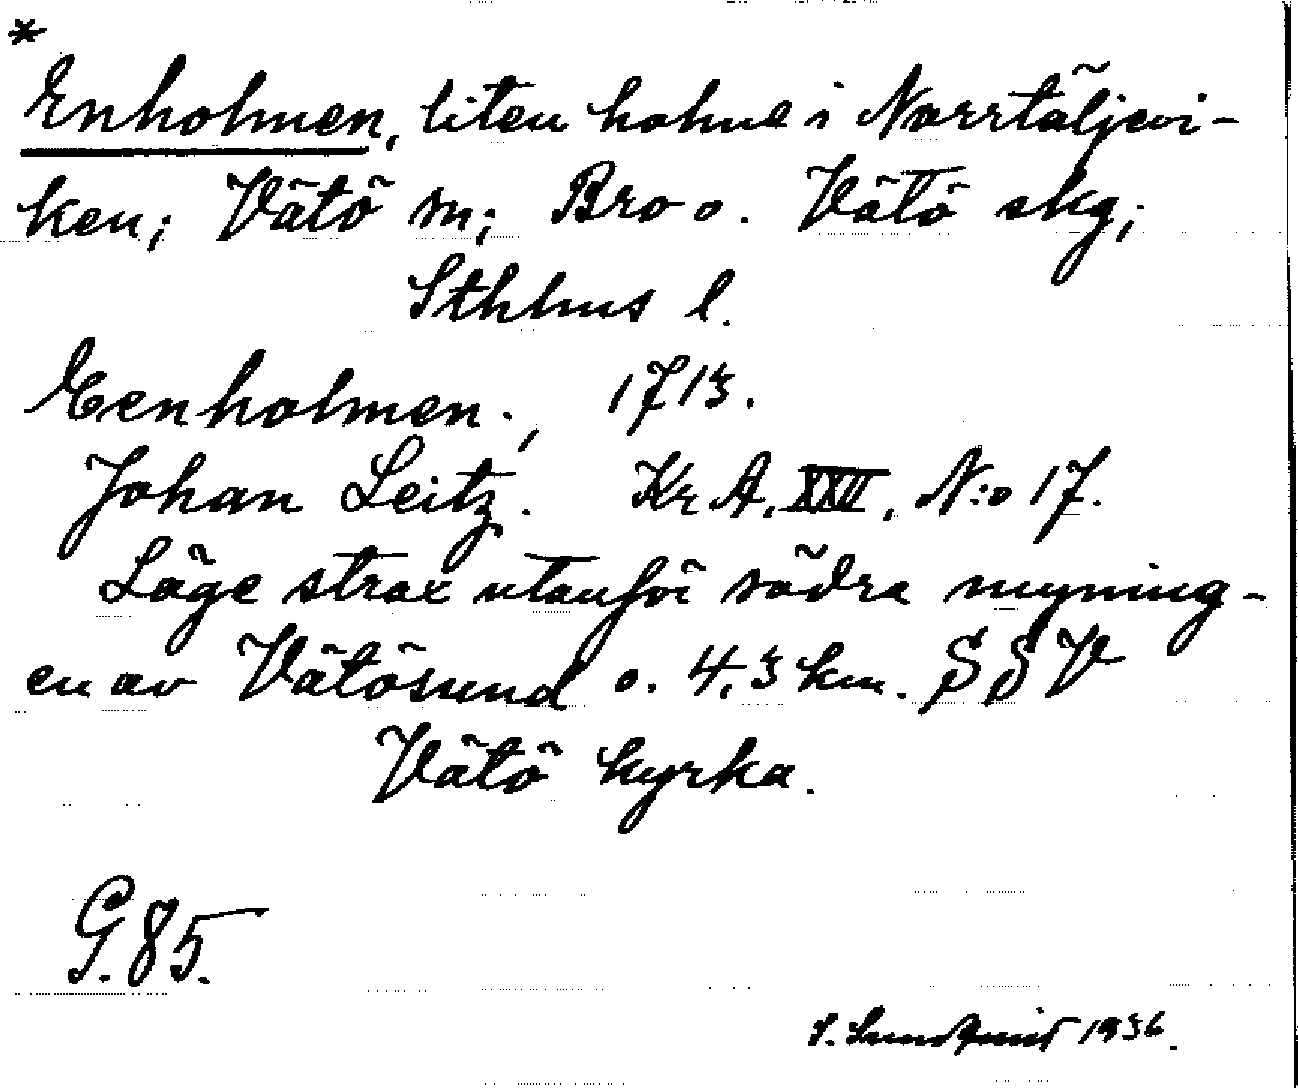 *
Enholmen, liten holme i Norrtäljevi-
ken; Vätö sn; Bro o. Vätö skg;
Sthlms l.
Eenholmen., 1713.
Johan Leitz. Kr A. XXII, N:o 17.
Läge strax utanför södra mynning-
en av Vätösund o. 4,3 km. SSV
Vätö kyrka.
G. 85.
S. Lundqvist 1936.